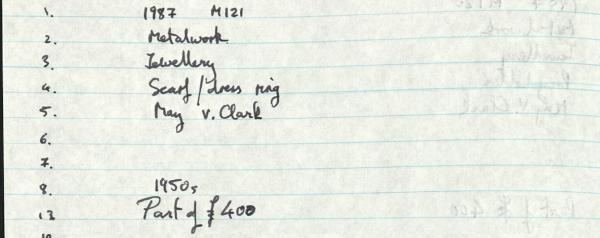 1. 1987 M121
2. Metalwork
3. Jewellery
4. Scarf/dress ring
5. May V. Clark
6.
7.
8. 1950s
13 Part of £400